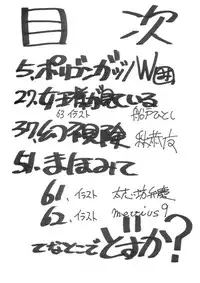 目次
5.ポリゴンガッツ/W田
27.女王様が見ている
63 イラスト 船戸ひとし
37.幻視険
51.まほみて
61. イラスト
62. イラスト mercius9
てなとこでどすか?